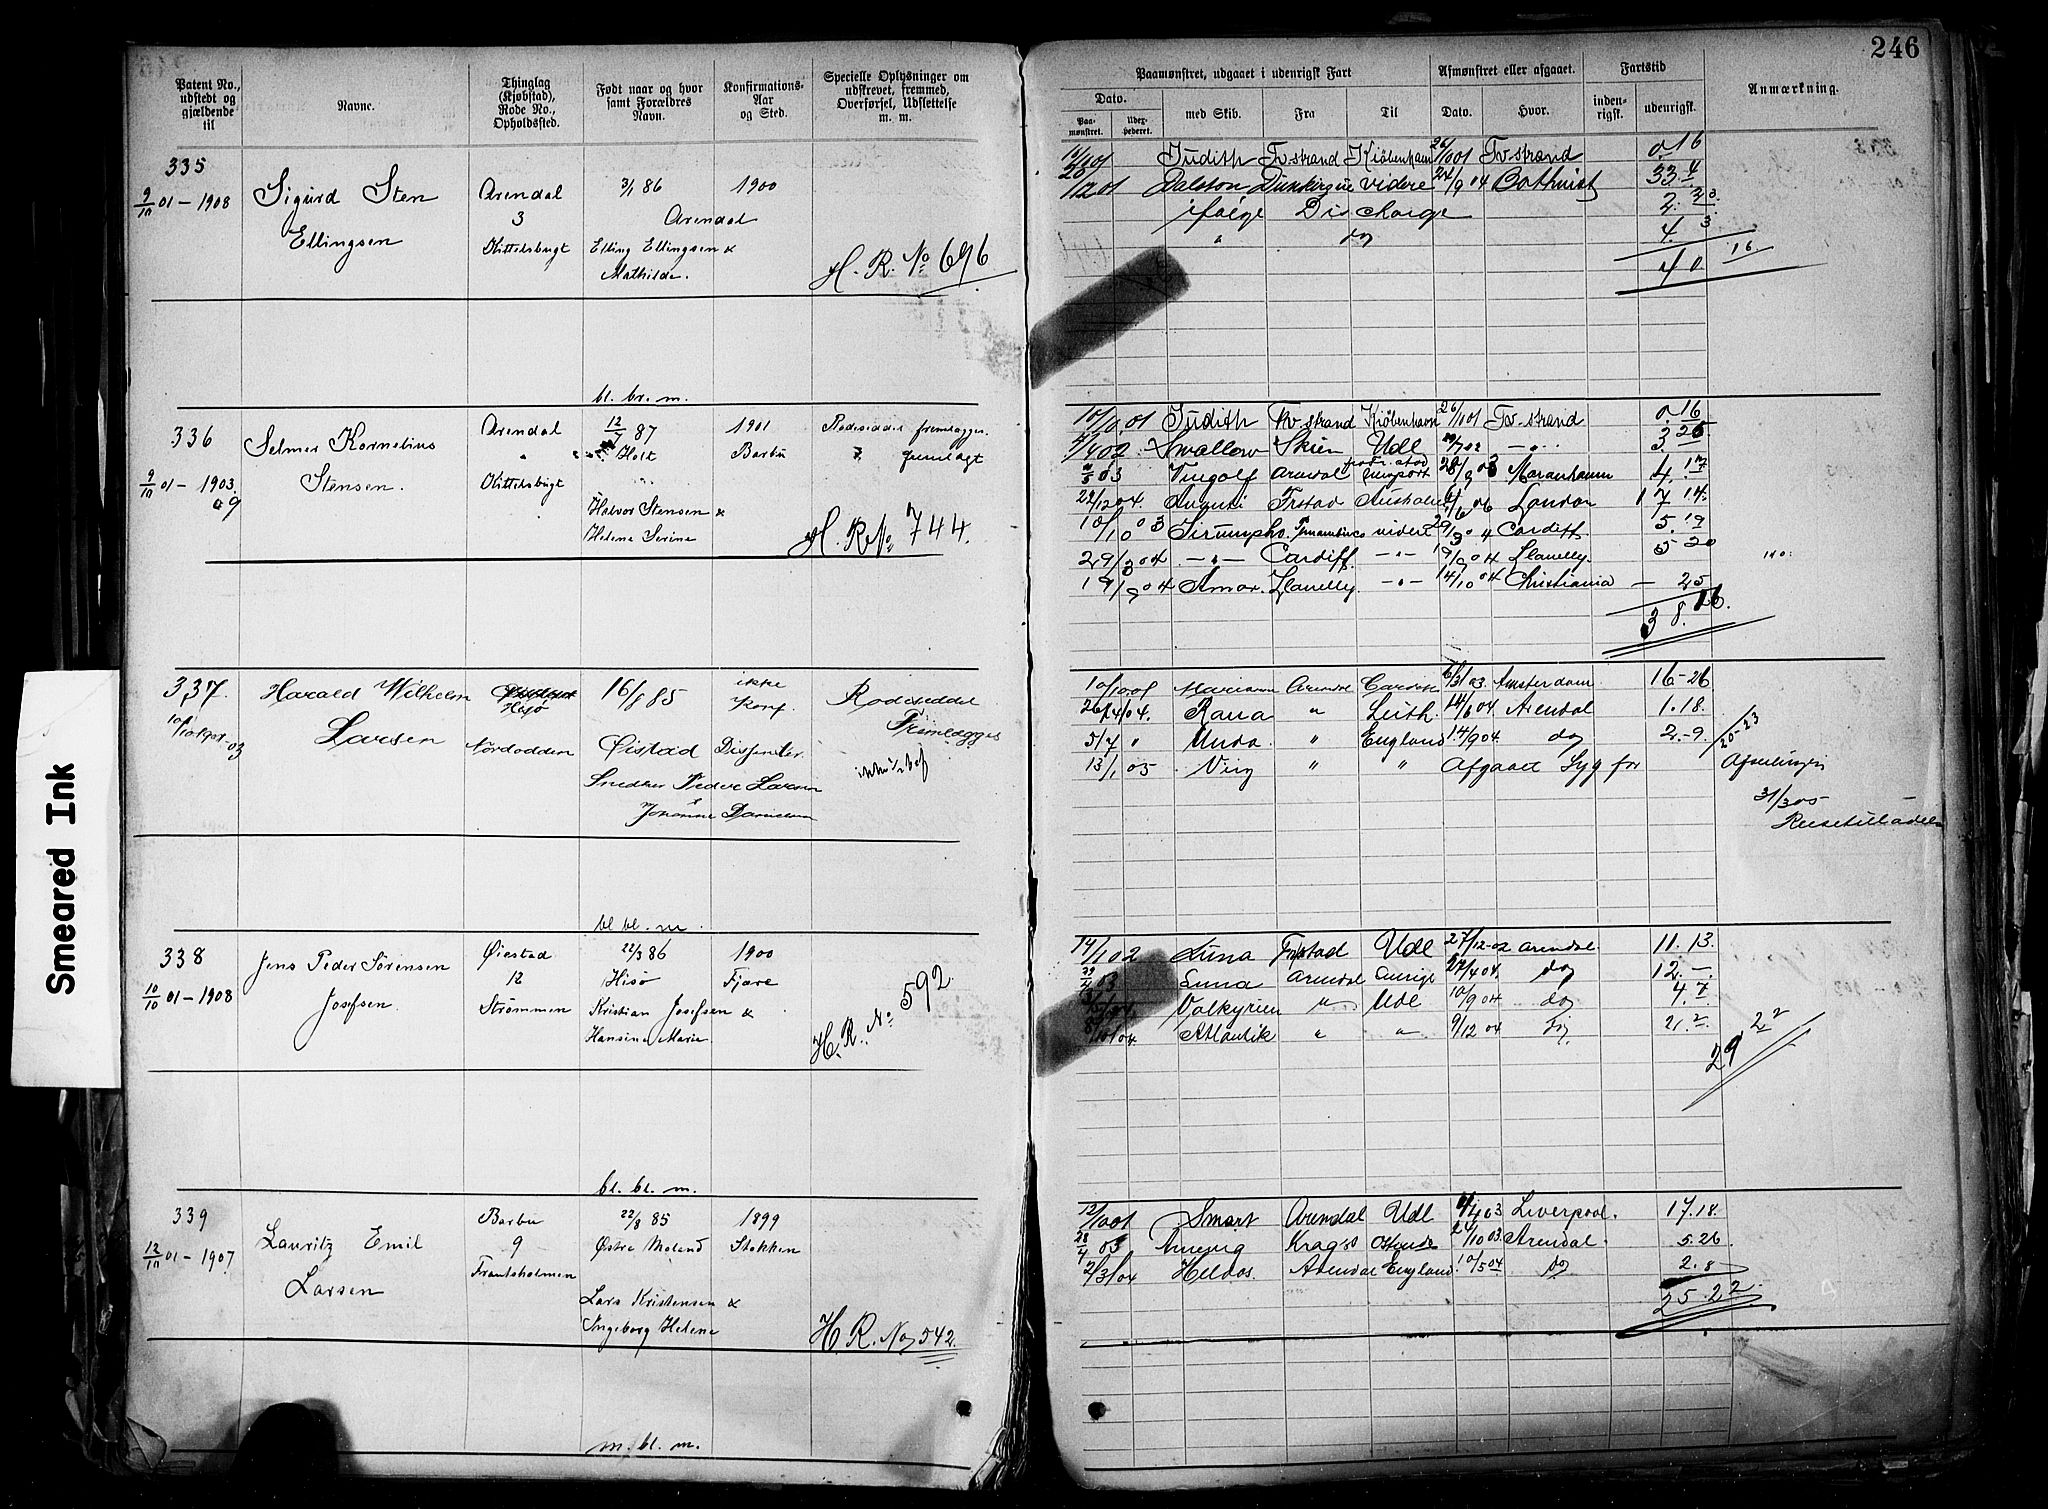 246
Patent No., udstedt og gjældende til
Navne.
Thinglag (Kjøbstad), Rode No., Opholdssted.
Født naar og hvor samt Forældres Navn.
Konfirmations-Aar og Sted.
Specielle Oplysninger om udskrevet, fremmed, Overførsel, Udslettelse m. m.
Paamønstret, udgaaet i udenrigsk Fart
Afmønstret eller afgaaet.
Fartstid
Anmærkning.
Dato.
med Skib.
Fra
Til
Dato.
Hvor.
inden-rigsk.
udenrigsk.
Paa-mønstret.
Udex-pederet.
335
9/10 01 - 1908
Sigurd Sten
Ellingsen
Arendal
3
Kittelsbugt
3/1 86
Arendal
Elling Ellingsen &
Mathilde.
1900
H. R. No 696
bl. br. m.
Judith Tvstrand Kjöbenhavn 26/10 01 Tvstrand 0. 16
Dalston Dünkirque videre 24/9 04 33. 4
ifølge Discharge 2.
" do 4. 3
40 16
336
9/10 01 - 1903.
09
Selmer Kornelius
Stensen.
Arendal
"
Kittelsbugt
12/7 87
Holt
Halvor Stensen &
Helene Serine
1901
Barbu
Rodeseddel fremlægges.
fremlagt
H. R. No 744.
bl bl. m.
10/10 01 Judith Tvstrand Kjöbenhavn 26/10 01 Tvstrand 0. 16
4/4 02 Swallow Skien Udl 3 25
03 Vingolf Arendal 28/9 03 Maranham 4. 17
22/12 04. August Frstad Australie 06 London 17 14.
10/10 03 videre 29/3 04 Cardiff. 5. 19
29/3 04 -"- Cardiff. -"- 19/9 04 Llanelly. 5 20
19/9 04 Amor. Llanelly. -"- 14/10 04 Christiania - 25
38. 26.
337.
Harald Wilhelm
Larsen
Hisø
Nordodden
16/8 85
Øistad
Snedker Peder Larsen
Johanne Danielsen
ikke
Konf.
Dissenter.
Rodeseddel
Fremlægges
10/10 01 Arendal 03. Amsterdam 16-26
26/4 04. Rana " Leith. 14/6 04 Arendal 1. 18.
5/7 " " England 14/9 04. do 2.-9.
20-23
13/1 05 " " Afgaaet Syg for Afseilingen
31/3 05
338
10/10 01 - 1908
Jens Peder Sörensen
Josefsen
Øiestad
12
Strømmen
22/3 86
Hisö
Kristian Josefsen &
Hansine Marie
1900
Fjære
H. R. No 592
bl. bl. m.
14/1 02 Luna Frstad Udl 27/12-02 Arendal. 11. 13.
03 Luna Arendal 27/4 04. do 12. -.
Valkyrien " Udl 10/9 04 do 4. 7
8/10 04. Atlantik " " 9/12 04 do 2. 2
29 22
339
12/10 01 - 1907
Lauritz Emil
Larsen
Barbu
9
Frantsholmen
22/8 85
Østre Moland
Lars Kristensen &
Ingeborg Helene
1899
Stokken
H R. No 542.
m. bl. m.
12/10 01 Smart Arendal Udl 03 Liverpool. 17. 18.
28/4 03 Kragsö Ostende 24/10 03 Arendal. 5. 26
2/3 04 Arendal England 10/5 04 do 2. 8
25. 22
Smeared Ink